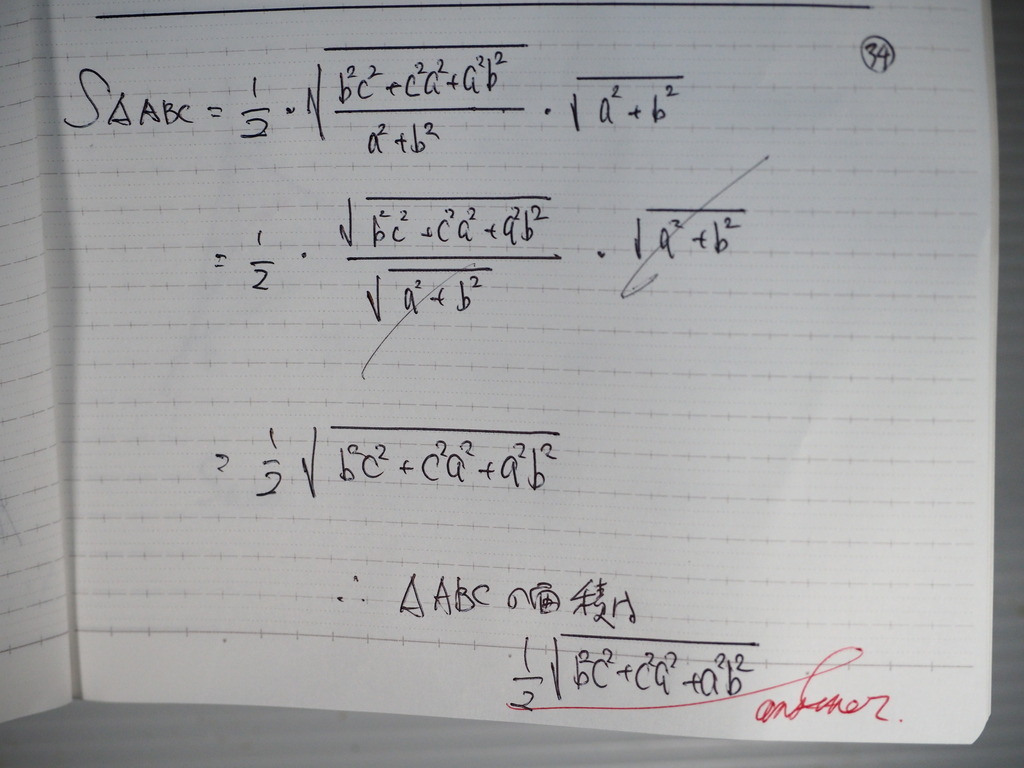 34
S△ABC = 1/2 · √((b²c² + c²a² + a²b²)/(a² + b²)) · √(a² + b²)
= 1/2 · √(b²c² + c²a² + a²b²)/√(a² + b²) · √(a² + b²)
= 1/2 √(b²c² + c²a² + a²b²)
∴ △ABC の面積は
1/2 √(b²c² + c²a² + a²b²)
answer.